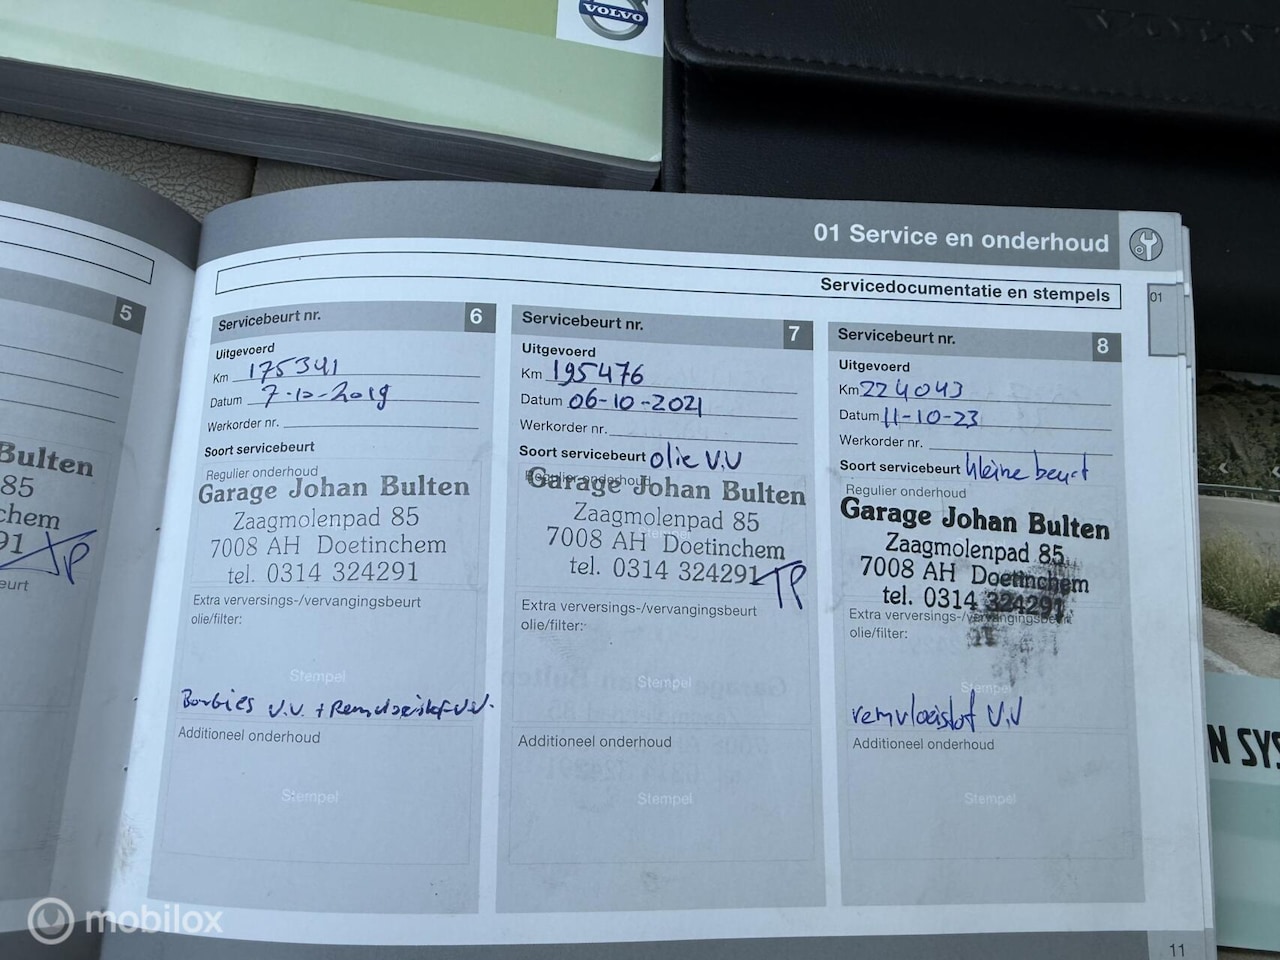 VOLVO
01 Service en onderhoud
01
Servicedocumentatie en stempels
5
Bulten
85
chem
91
TP
eurt
Servicebeurt nr. 6
Uitgevoerd
Km 175341
Datum 7-10-2019
Werkorder nr.
Soort servicebeurt
Regulier onderhoud
Garage Johan Bulten
Zaagmolenpad 85
7008 AH Doetinchem
tel. 0314 324291
Extra verversings-/vervangingsbeurt
olie/filter:
Stempel
Bougies V.V. + Remvloeistof V.V.
Additioneel onderhoud
Stempel
Servicebeurt nr. 7
Uitgevoerd
Km 195476
Datum 06-10-2021
Werkorder nr.
Soort servicebeurt olie V.V
Regulier onderhoud
Garage Johan Bulten
Zaagmolenpad 85
7008 AH Doetinchem
tel. 0314 324291
TP
Extra verversings-/vervangingsbeurt
olie/filter:
Stempel
Additioneel onderhoud
Stempel
Servicebeurt nr. 8
Uitgevoerd
Km 224043
Datum 11-10-23
Werkorder nr.
Soort servicebeurt kleine beurt
Regulier onderhoud
Garage Johan Bulten
Zaagmolenpad 85
7008 AH Doetinchem
tel. 0314 324291
Extra verversings-/vervangingsbeurt
olie/filter:
Stempel
remvloeistof V.V
Additioneel onderhoud
Stempel
N SYS
11
mobilox